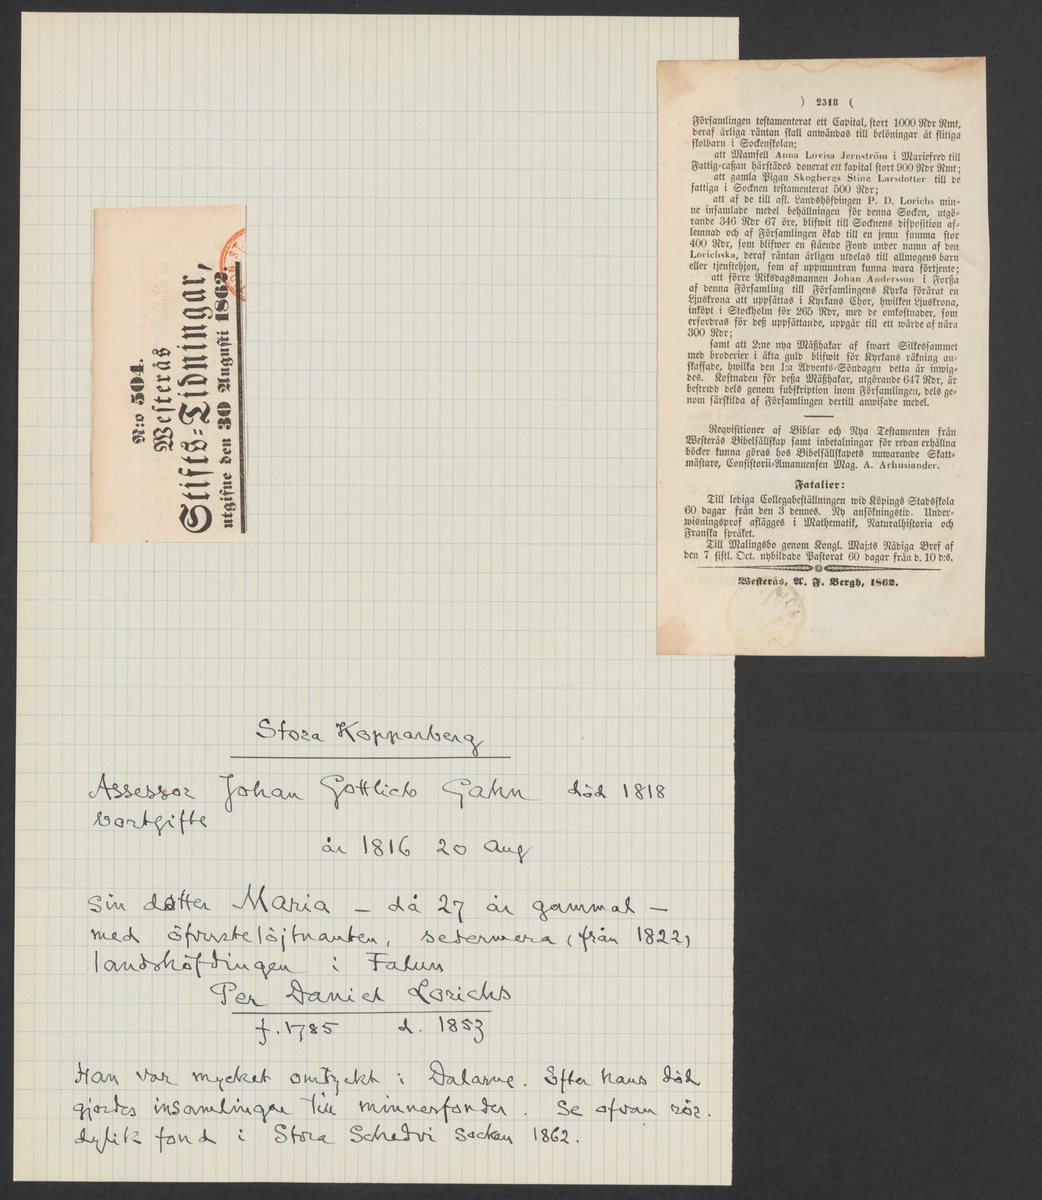 N:o 504.
Westerås
Stifts-Tidningar,
utgifne den 30 Augusti 1862.
) 2318 (
Församlingen testamenterat ett Capital, stort 1000 Rdr Rmt,
deraf årliga räntan skall användas till belöningar åt flitiga
skolbarn i Sockenskolan;
att Mamsell Anna Lovisa Jernström i Mariefred till
Fattig-caßan härstädes donerat ett kapital stort 900 Rdr Rmt;
att gamla Pigan Skogbergs Stina Larsdotter till de
fattiga i Socknen testamenterat 500 Rdr;
att af de till afl. Landshöfdingen P. D. Lorichs min-
ne insamlade medel behållningen för denna Socken, utgö-
rande 346 Rdr 67 öre, blifwit till Socknens disposition af-
lemnad och af Församlingen ökad till en jemn summa stor
400 Rdr, som blifwer en stående Fond under namn af den
Lorichska, deraf räntan årligen utdelas till allmogens barn
eller tjenstehjon, som af uppmuntran kunna wara förtjente;
att förre Riksdagsmannen Johan Andersson i Forßa
af denna Församling till Församlingens Kyrka förärat en
Ljuskrona att uppsättas i Kyrkans Chor, hwilken Ljuskrona,
inköpt i Stockholm för 265 Rdr, med de omkostnader, som
erfordras för deß uppsättande, uppgår till ett wärde af nära
300 Rdr;
samt att 2:ne nya Mäßhakar af swart Silkessammet
med broderier i äkta guld blifwit för Kyrkans räkning an-
skaffade, hwilka den 1:a Advents-Söndagen detta år inwig-
des. Kostnaden för deßa Mäßhakar, utgörande 647 Rdr, är
bestridd dels genom subskription inom Församlingen, dels ge-
nom särskilda af Församlingen dertill anwisade medel.
Reqvisitioner af Biblar och Nya Testamenten från
Westerås Bibelsällskap samt inbetalningar för redan erhållna
böcker kunna göras hos Bibelsällskapets nuwarande Skatt-
mästare, Consistorii-Amanuensen Mag. A. Arhusiander.
Fatalier:
Till lediga Collegabeställningen wid Köpings Stadsskola
60 dagar från den 3 dennes. Ny ansökningstid. Under-
wisningsprof aflägges i Mathematik, Naturalhistoria och
Franska språket.
Till Malingsbo genom Kongl. Maj:ts Nådiga Bref af
den 7 sistl. Oct. nybildade Pastorat 60 dagar från d. 10 d:s.
Westerås, A. F. Bergh, 1862.
Stora Kopparberg
Assessor Johan Gottlieb Gahn död 1818
bortgifte
år 1816 20 Aug
sin dotter Maria – då 27 år gammal –
med öfverstelöjtnanten, sedermera (från 1822)
landshöfdingen i Falun
Per Daniel Lorichs
f. 1785 d. 1853
Han var mycket omtyckt i Dalarne. Efter hans död
gjordes insamlingar till minnesfonder. Se ofvan rör.
dylik fond i Stora Schedvi socken 1862.